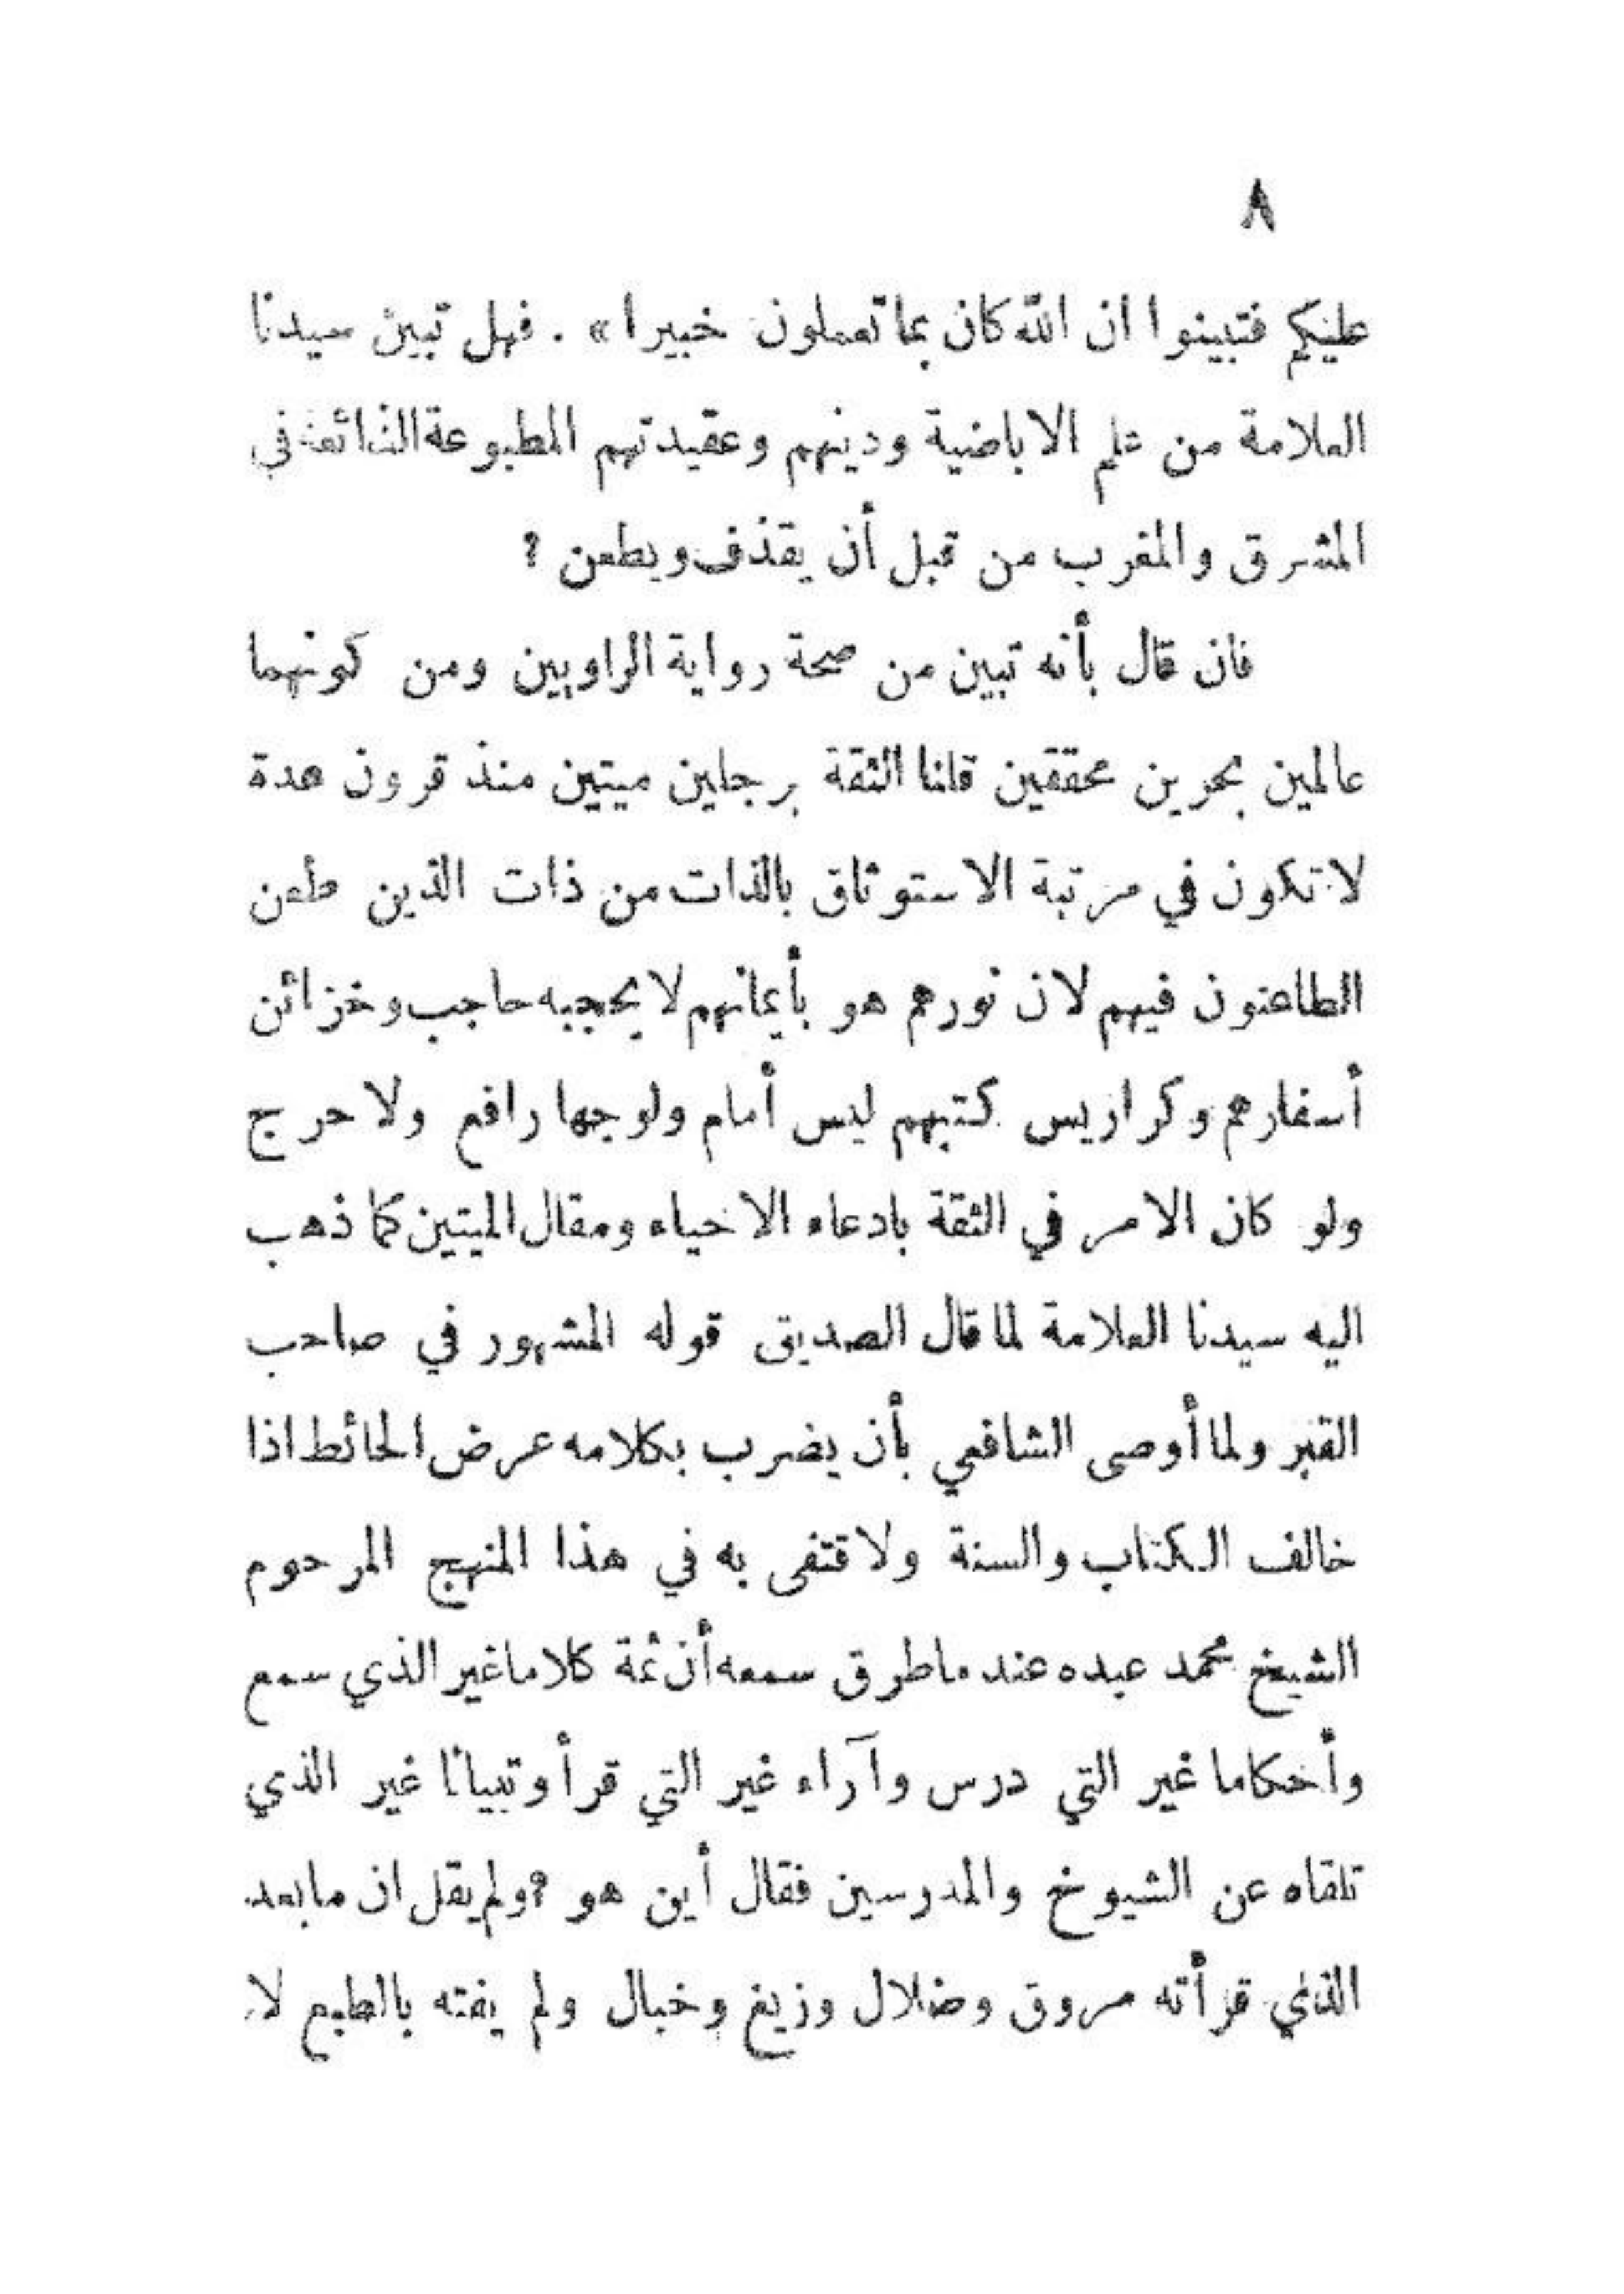 ٨
عليكم فتبينوا ان الله كان بما تعملون خبيرا » . فهل تبين سيدنا
العلامة من علم الاباضية ودينهم وعقيدتهم المطبوعة الذائعة في
المشرق والمغرب من قبل أن يقذف ويطعن ؟
فان قال بأنه تبين من صحة رواية الراويين ومن كونهما
عالمين بحرين محققين قلنا الثقة برجلين ميتين منذ قرون عدة
لا تكون في مرتبة الاستوثاق بالذات من ذات الذين طعن
الطاعنون فيهم لان نورهم هو بأيمانهم لا يحجبه حاجب وخزائن
أسفارهم وكراريس كتبهم ليس أمام ولوجها رافع ولا حرج
ولو كان الامر في الثقة بادعاء الاحياء ومقال الميتين كما ذهب
اليه سيدنا العلامة لما قال الصديق قوله المشهور في صاحب
القبر ولما أوصى الشافعي بأن يضرب بكلامه عرض الحائط اذا
خالف الكتاب والسنة ولاقتفى به في هذا المنهج المرحوم
الشيخ محمد عبده عند ما طرق سمعه أن ثمة كلاما غير الذي سمع
وأحكاما غير التي درس وآراء غير التي قرأ وتبيانا غير الذي
تلقاه عن الشيوخ والمدرسين فقال أين هو ؟ ولم يقل ان ما بعد
الذي قرأته مروق وضلال وزيغ وخبال ولم يفته بالطبع لا